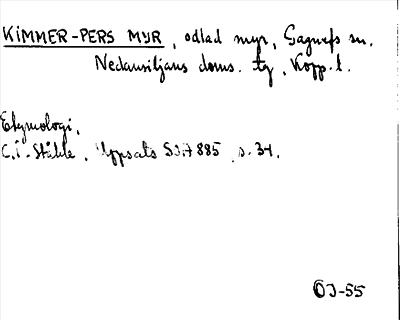 KIMMER-PERS MYR, odlad myr, Gagnefs sn.
Nedansiljans doms. tg, Kopp. l.
Etymologi.
C.I. Ståhle, Uppsats SI. 7885, s. 34.
ÖJ-55